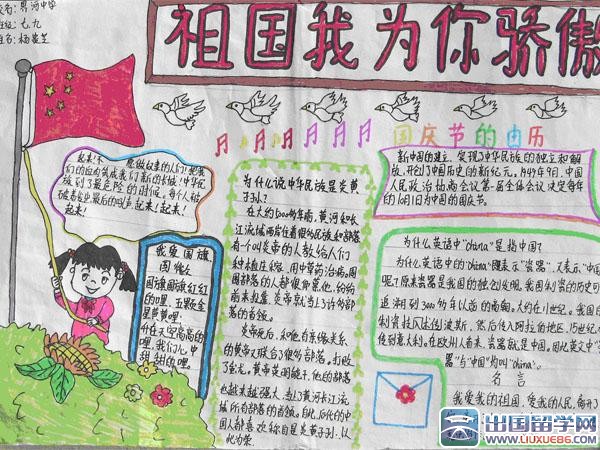 祖国我为你骄傲
校名：界河中学
班级：七九
国庆节的由历
起来！不愿做奴隶的人们！把我
们的血肉筑成我们新的长城！中华民
族到了最危险的时候。每个人被
迫着发出最后的吼声起来！起来！
起来！
我爱国旗
国旗国旗红红
的哩，五颗金星
黄黄哩，
升在天空高高的
哩，我们心中
甜甜的哩。
为什么说中华民族是炎黄
子孙？
在大约5000年前，黄河和长
江流域两岸住着很多氏族和部落
有一个叫炎帝的人教给人们
种植庄稼，用中草药治病，周
围部落的人都很仰慕他，纷纷
前来归属，炎帝就当上了许多部落
的首领。
炎帝死后，和他有亲缘关系
的黄帝又联合了很多部落，打败了
蚩尤。黄帝英明能干，他的部落
也越来越强大，当了黄河长江流
域所有部落的首领。自此，后代的中
国人都喜欢称自是炎黄子孙，以
此为荣。
新中国的建立，实现了中华民族的独立和解
放，开创了中国历史的新纪元。1949年9月，中国
人民政治协商会议第一届全体会议决定每年
的10月1日为中国的国庆节。
为什么英语中"china"是指中国？
为什么英语中的"china"既表示"瓷器"，又表示"中国
呢？原来瓷器是我国的独创发明。我国制瓷的历史可
追溯到3000千年以前的商朝。大约在八世纪，我国
制瓷技风传到波斯，然后传入阿拉伯地区，15世纪
传到意大利。在欧洲人看来，瓷器就是中国。因此英文中"瓷
器"与"中国"均叫"china"。
名言
我爱我的祖国，爱我的人民，离开了
出国留学网
www.liuxue86.com